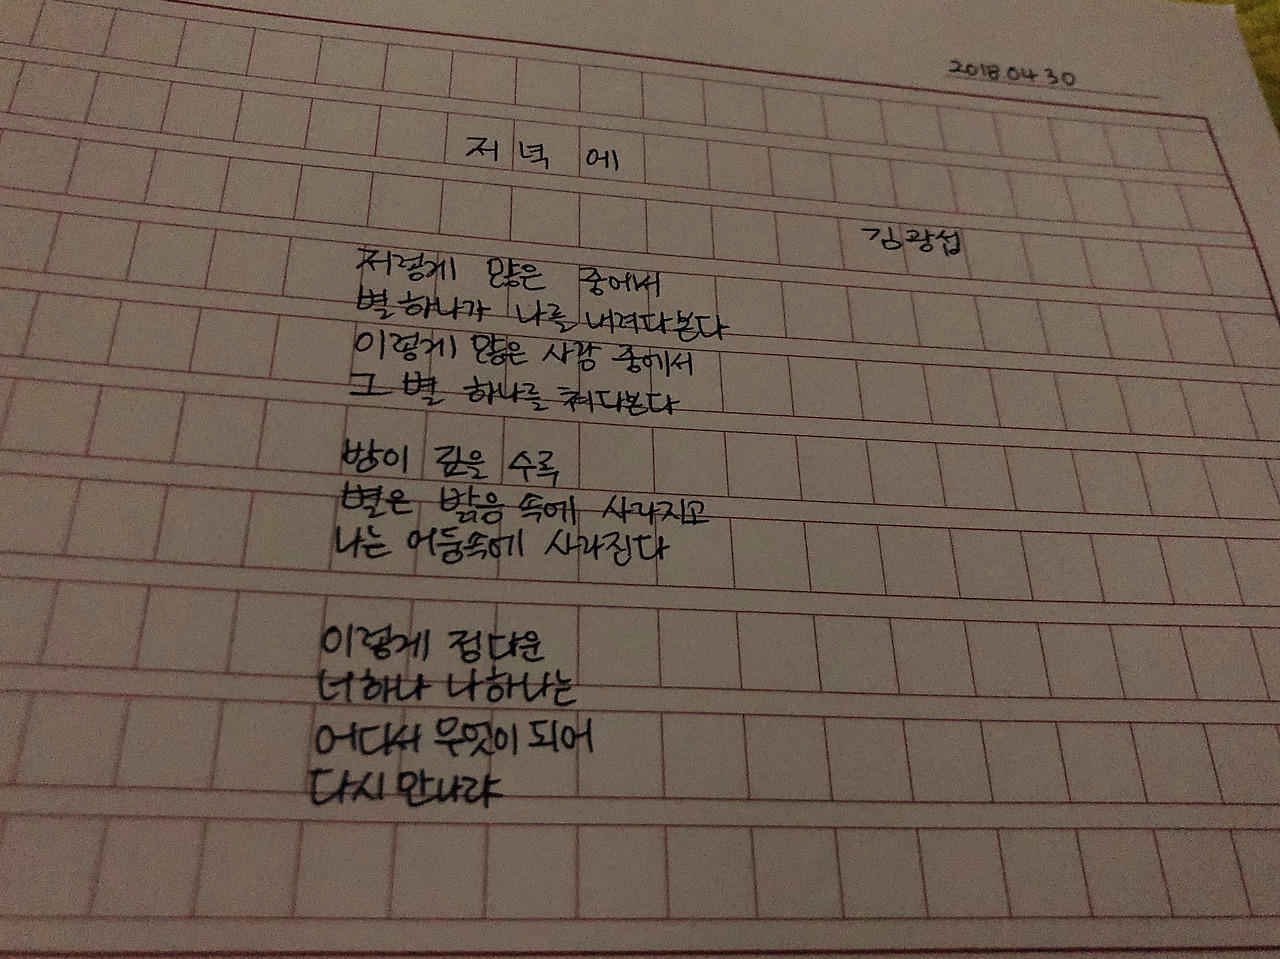 2018 04 30
저녁에
김광섭
저렇게 많은 중에서
별하나가 나를 내려다본다
이렇게 많은 사람 중에서
그 별 하나를 쳐다본다
밤이 깊을 수록
별은 밝음 속에 사라지고
나는 어둠속에 사라진다
이렇게 정다운
너하나 나하나는
어디서 무엇이 되어
다시 만나랴